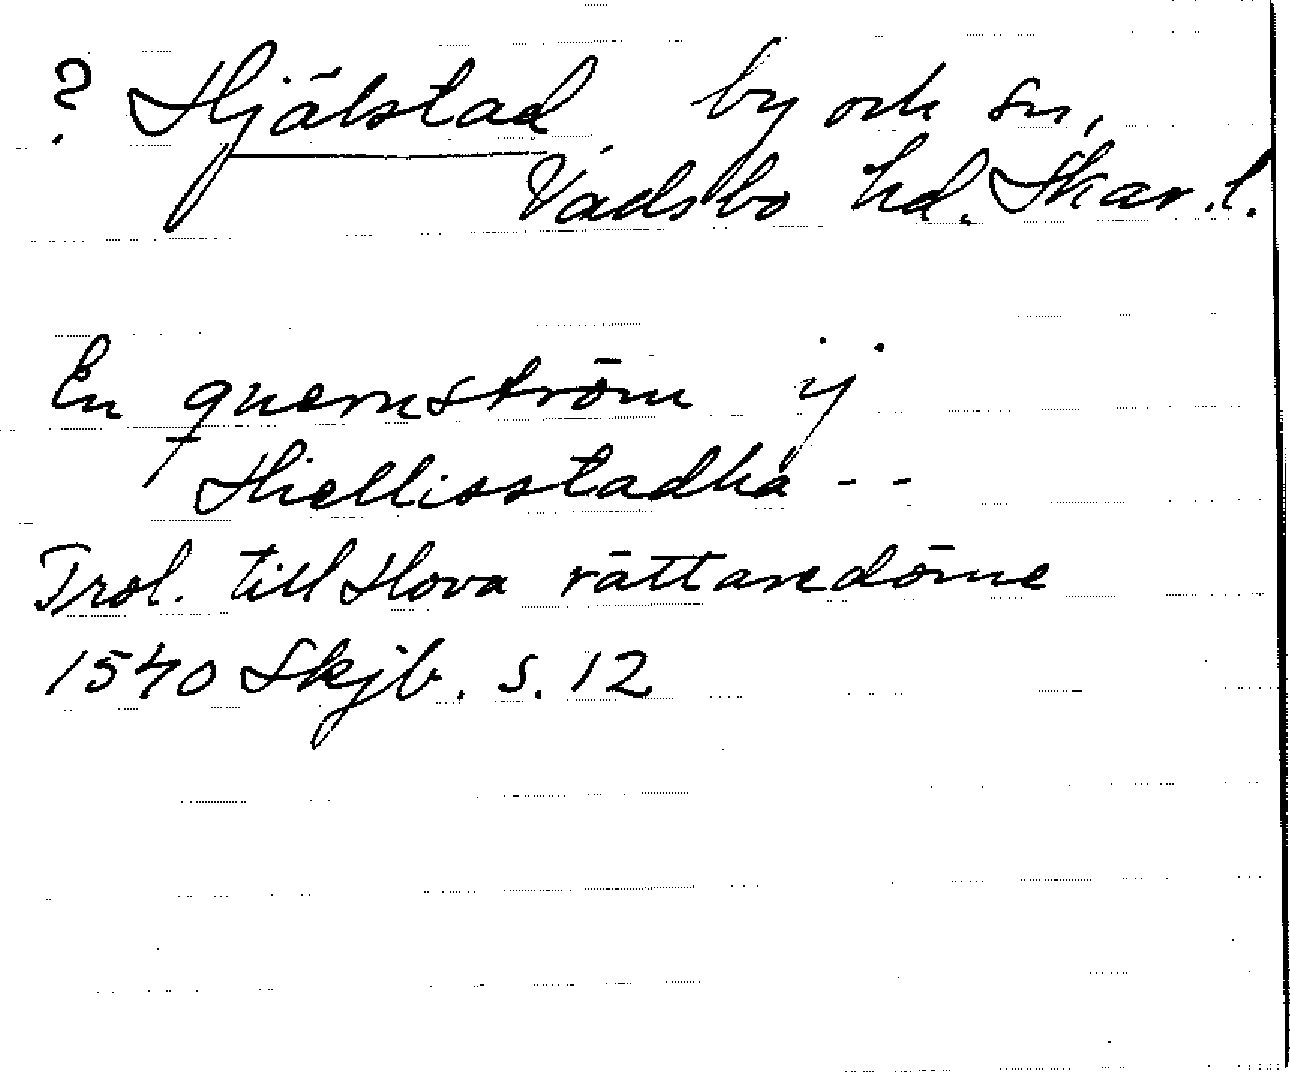 ? Hjälstad by och sn,
Vadsbo hd. Skar.l.
En quernström ÿ
Hiellisstadha - -
Trol. till Hova rättaredöme
1540 Skjb. s. 12